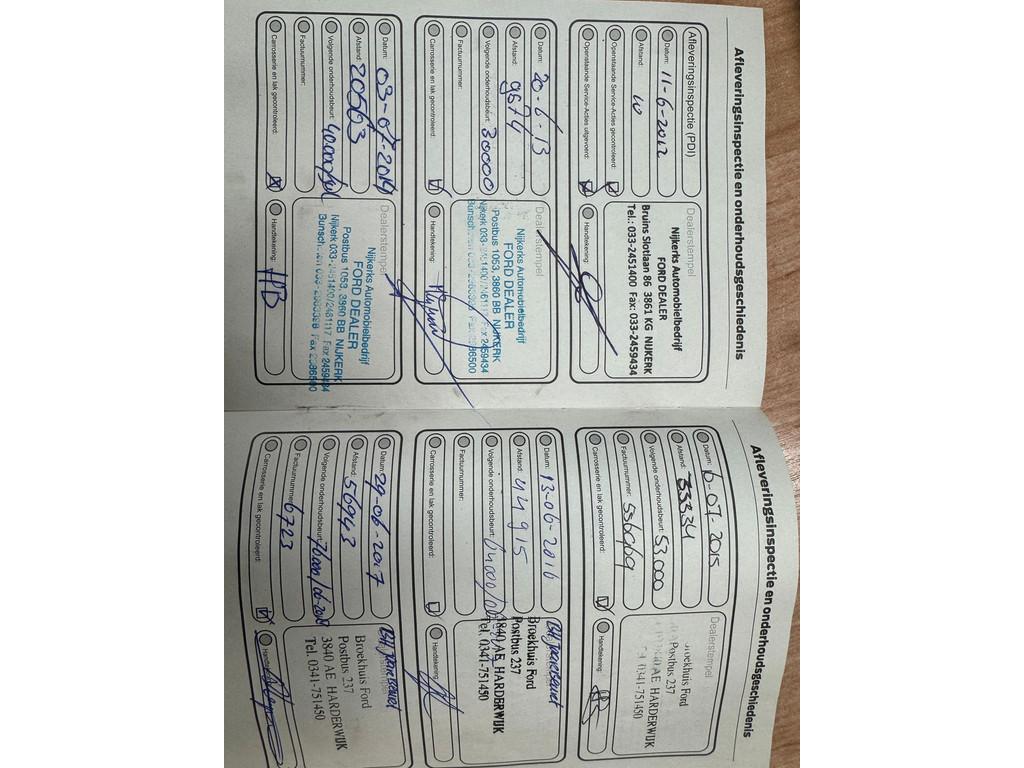 Afleveringsinspectie en onderhoudsgeschiedenis
Afleveringsinspectie (PDI)
Datum: 11-6-2012
Afstand: 10
Openstaande Service-Acties gecontroleerd:
Openstaande Service-Acties uitgevoerd:
Dealerstempel
Nijkerks Automobielbedrijf
FORD DEALER
Bruins Slotlaan 86 3861 KG NIJKERK
Tel.: 033-2451400 Fax: 033-2459434
Handtekening:
Datum: 20-6-13
Afstand: 9874
Volgende onderhoudsbeurt: 30000
Factuurnummer:
Carrosserie en lak gecontroleerd:
Dealerstempel
Nijkerks Automobielbedrijf
FORD DEALER
Postbus 1053, 3860 BB NIJKERK
Nijkerk 033-2451400/2461117 Fax 2459434
Handtekening:
Datum: 03-07-2014
Afstand: 20563
Volgende onderhoudsbeurt: 40000
Factuurnummer:
Carrosserie en lak gecontroleerd:
Dealerstempel
Nijkerks Automobielbedrijf
FORD DEALER
Postbus 1053, 3860 BB NIJKERK
Nijkerk 033-2451400/2461117 Fax 2459434
Handtekening: HB
Afleveringsinspectie en onderhoudsgeschiedenis
Datum: 6-07-2015
Afstand: 33334
Volgende onderhoudsbeurt: 53.000
Factuurnummer: 536969
Carrosserie en lak gecontroleerd:
Dealerstempel
Broekhuis Ford
Postbus 237
3840 AE HARDERWIJK
Tel. 0341-751450
Handtekening:
Datum: 13-06-2016
Afstand: 44915
Volgende onderhoudsbeurt: 64000
Factuurnummer:
Carrosserie en lak gecontroleerd:
Broekhuis Ford
Postbus 237
3840 AE HARDERWIJK
Tel. 0341-751450
Handtekening:
Datum: 29-06-2017
Afstand: 56943
Volgende onderhoudsbeurt: 76000/06-2018
Factuurnummer: 6723
Carrosserie en lak gecontroleerd:
Dealerstempel
Broekhuis Ford
Postbus 237
3840 AE HARDERWIJK
Tel. 0341-751450
Handtekening: